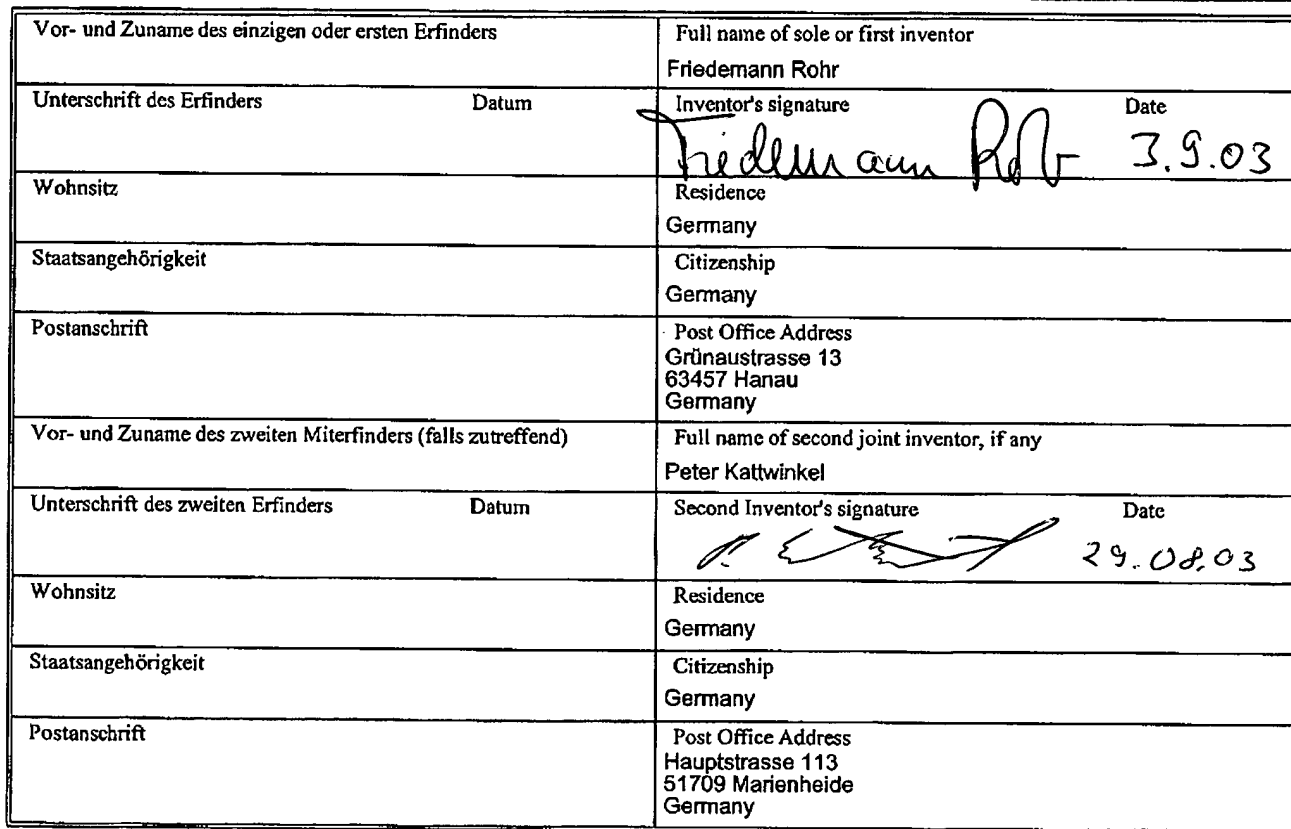 Vor- und Zuname des einzigen oder ersten Erfinders
Full name of sole or first inventor
Friedemann Rohr
Unterschrift des Erfinders Datum
Inventor's signature Date
Friedemann Rohr 3.9.03
Wohnsitz
Residence
Germany
Staatsangehörigkeit
Citizenship
Germany
Postanschrift
Post Office Address
Grünaustrasse 13
63457 Hanau
Germany
Vor- und Zuname des zweiten Miterfinders (falls zutreffend)
Full name of second joint inventor, if any
Peter Kattwinkel
Unterschrift des zweiten Erfinders Datum
Second Inventor's signature Date
29.08.03
Wohnsitz
Residence
Germany
Staatsangehörigkeit
Citizenship
Germany
Postanschrift
Post Office Address
Hauptstrasse 113
51709 Marienheide
Germany